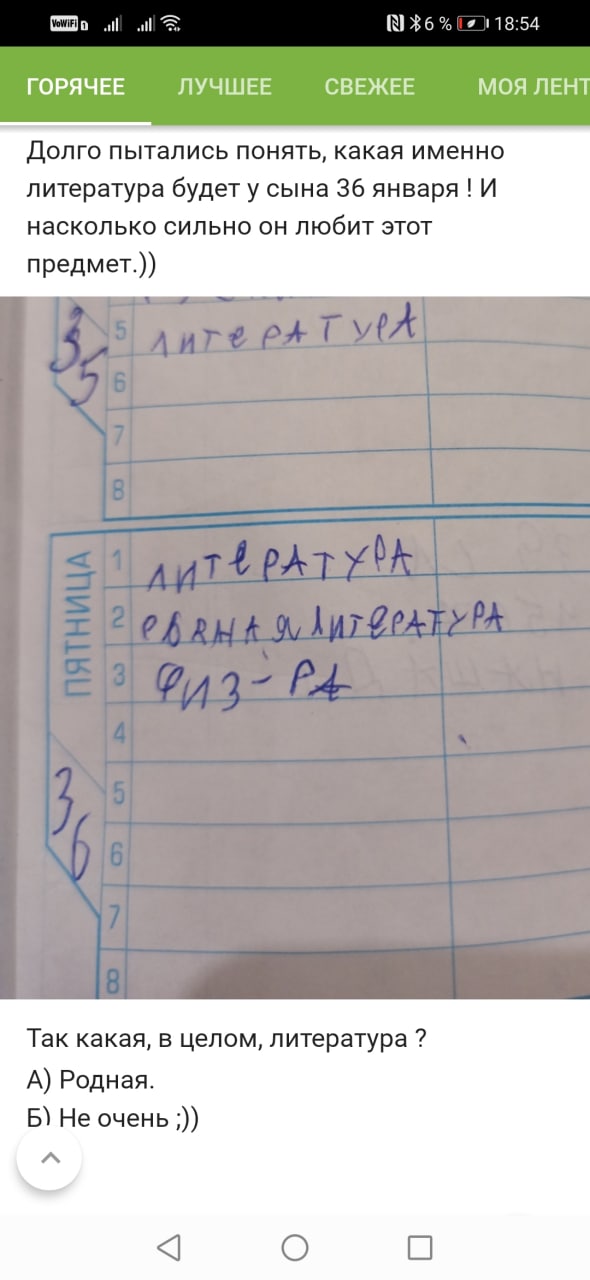 VoWiFi 1 6 % 18:54
ГОРЯЧЕЕ ЛУЧШЕЕ СВЕЖЕЕ МОЯ ЛЕНТ
Долго пытались понять, какая именно
литература будет у сына 36 января ! И
насколько сильно он любит этот
предмет.))
35
5 ЛИТеРАТУРА
6
7
8
ПЯТНИЦА
1 ЛИТеРАТУРА
2 РВАНАЯ ЛИТеРАТУРА
3 ФИЗ-РА
4
36
5
6
7
8
Так какая, в целом, литература ?
А) Родная.
Б) Не очень ;))